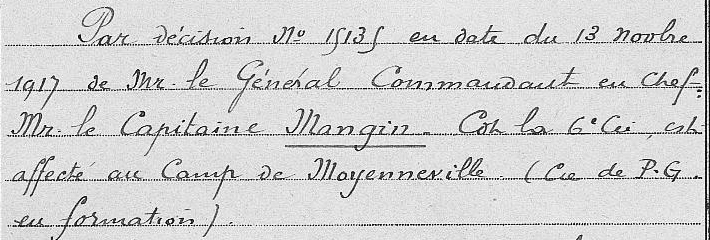 Par décision No 15135 en date du 13 novbre
1917 de Mr. le Général Commandant en Chef-
Mr. le Capitaine Mangin. Cdt la 6e Cie, est
affecté au Camp de Moyenneville. (Cie de P.G.
en formation).